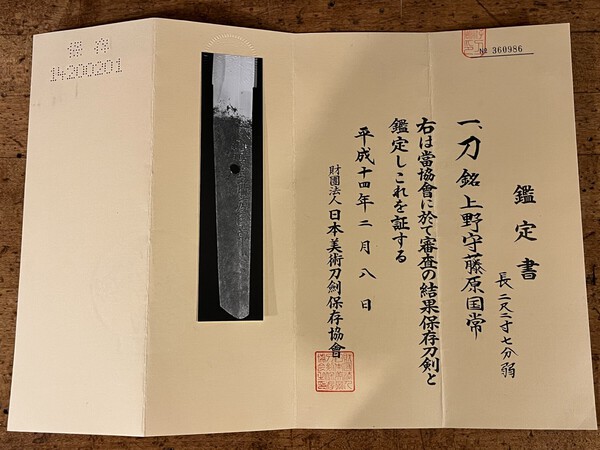 № 360986
鑑定書
一、刀 銘 上野守藤原国常
長二尺二寸七分弱
右は當協會に於て審査の結果保存刀剣と
鑑定しこれを証する
平成十四年二月八日
財團法人 日本美術刀劍保存協會
保存
14200201